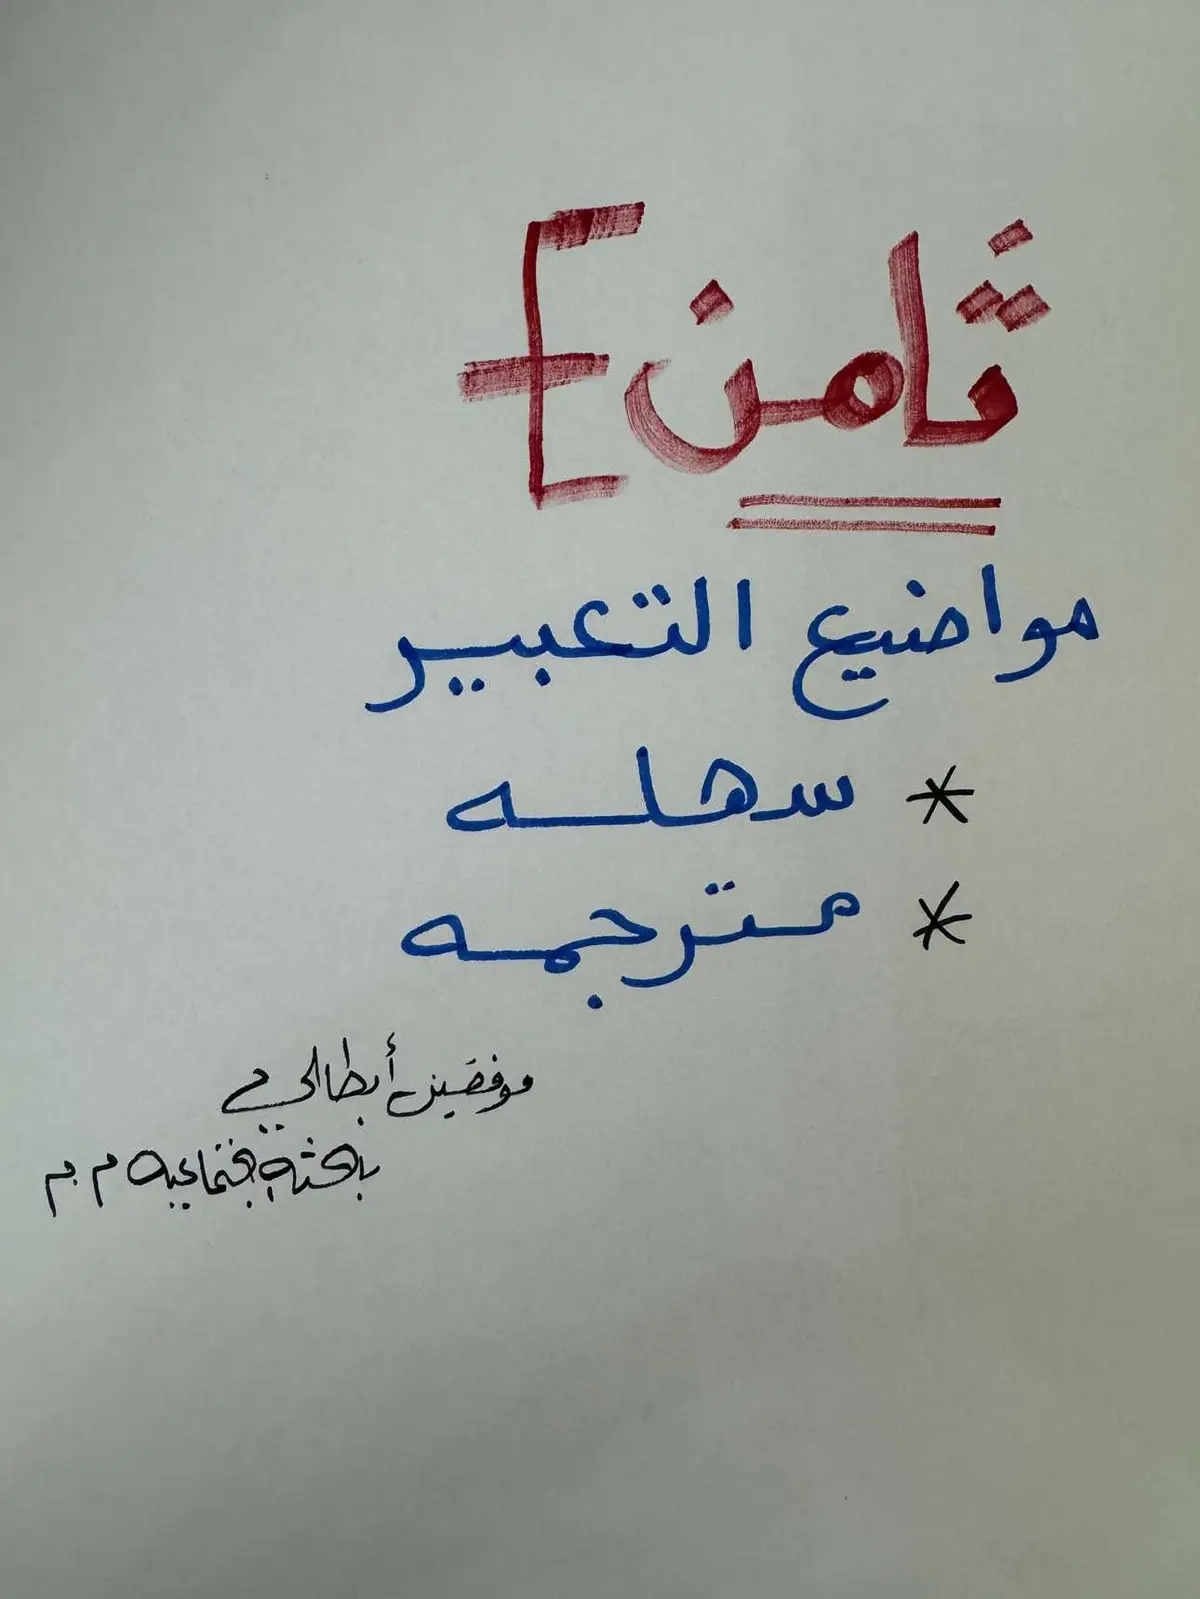 ثامن E
مواضيع التعبير
* سهله
* مترجمه
موفقين أبطالي
باحثة اجتماعية م.م